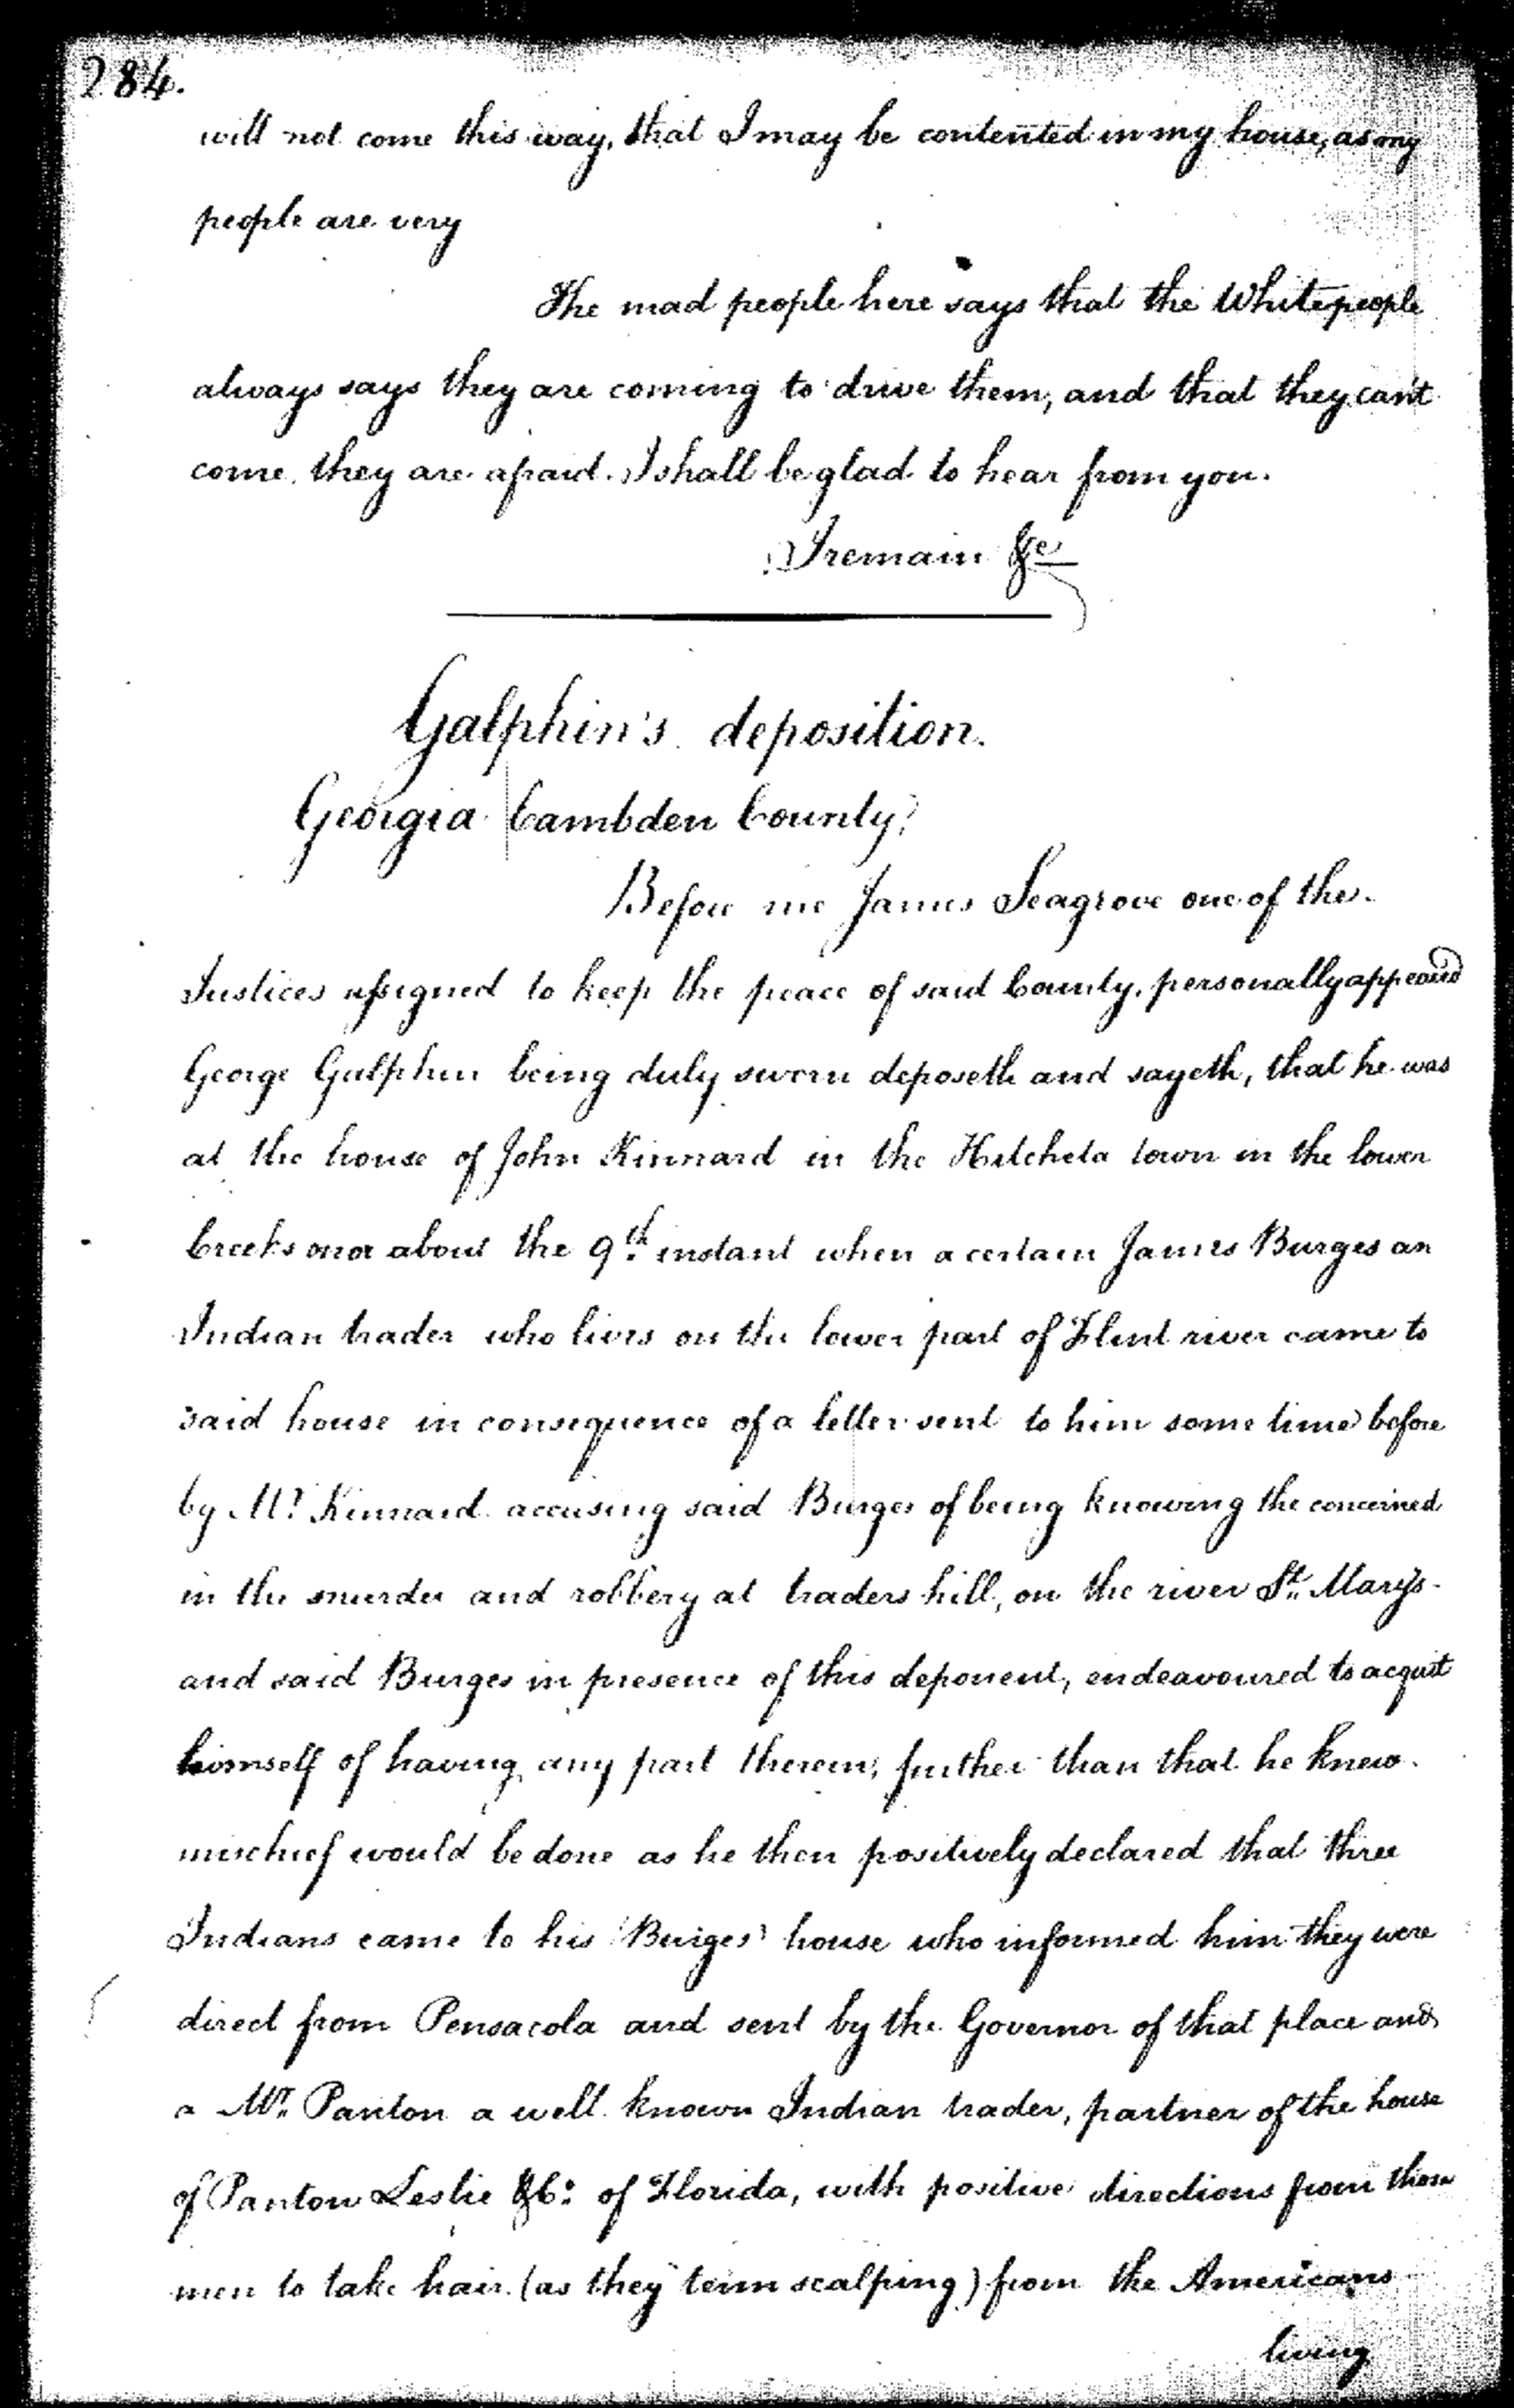 284.
will not come this way, that I may be contented in my house, as my
people are very
The mad people here says that the White people
always says they are coming to drive them, and that they can't
come, they are afraid. I shall be glad to hear from you.
I remain &c
Galphin's deposition.
Georgia Cambden County.
Before me James Seagrove one of the
Justices assigned to keep the peace of said County, personally appeared
George Galphin being duly sworn deposeth and sayeth, that he was
at the house of John Kinnard in the Hitcheta town in the lower
Creeks on or about the 9th. instant when a certain James Burges an
Indian trader who lives on the lower part of Flint river came to
said house in consequence of a letter sent to him some time before
by Mr. Kinnard accusing said Burges of being knowing the concerned
in the murder and robbery at traders hill, on the river St. Mary's
and said Burges in presence of this deponent, endeavoured to acquit
himself of having any part therein, further than that he knew
mischief would be done as he then positively declared that three
Indians came to his (Burges) house who informed him they were
direct from Pensacola and sent by the Governor of that place and
a Mr. Panton a well known Indian trader, partner of the house
of Panton Leslie & Co. of Florida, with positive directions from those
men to take hair (as they term scalping) from the Americans
living